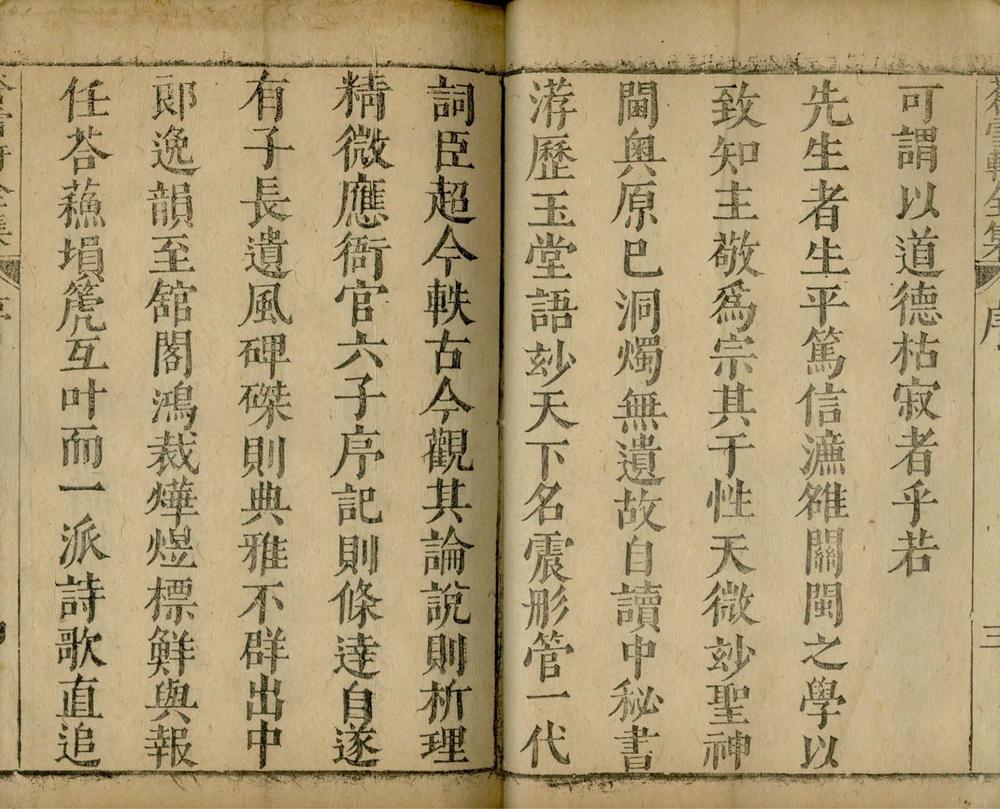 序
三
可謂以道德枯寂者乎若
先生者生平篤信濂雒關閩之學以
致知主敬爲宗其于性天微妙聖神
閫奧原已洞燭無遺故自讀中秘書
游歷玉堂語玅天下名震彤管一代
詞臣超今軼古今觀其論說則析理
精微應衙官六子序記則條達自遂
有子長遺風碑磔則典雅不群出中
郎逸韻至舘閣鴻裁燁煜標鮮與報
任荅蘓塤篪互叶而一派詩歌直追